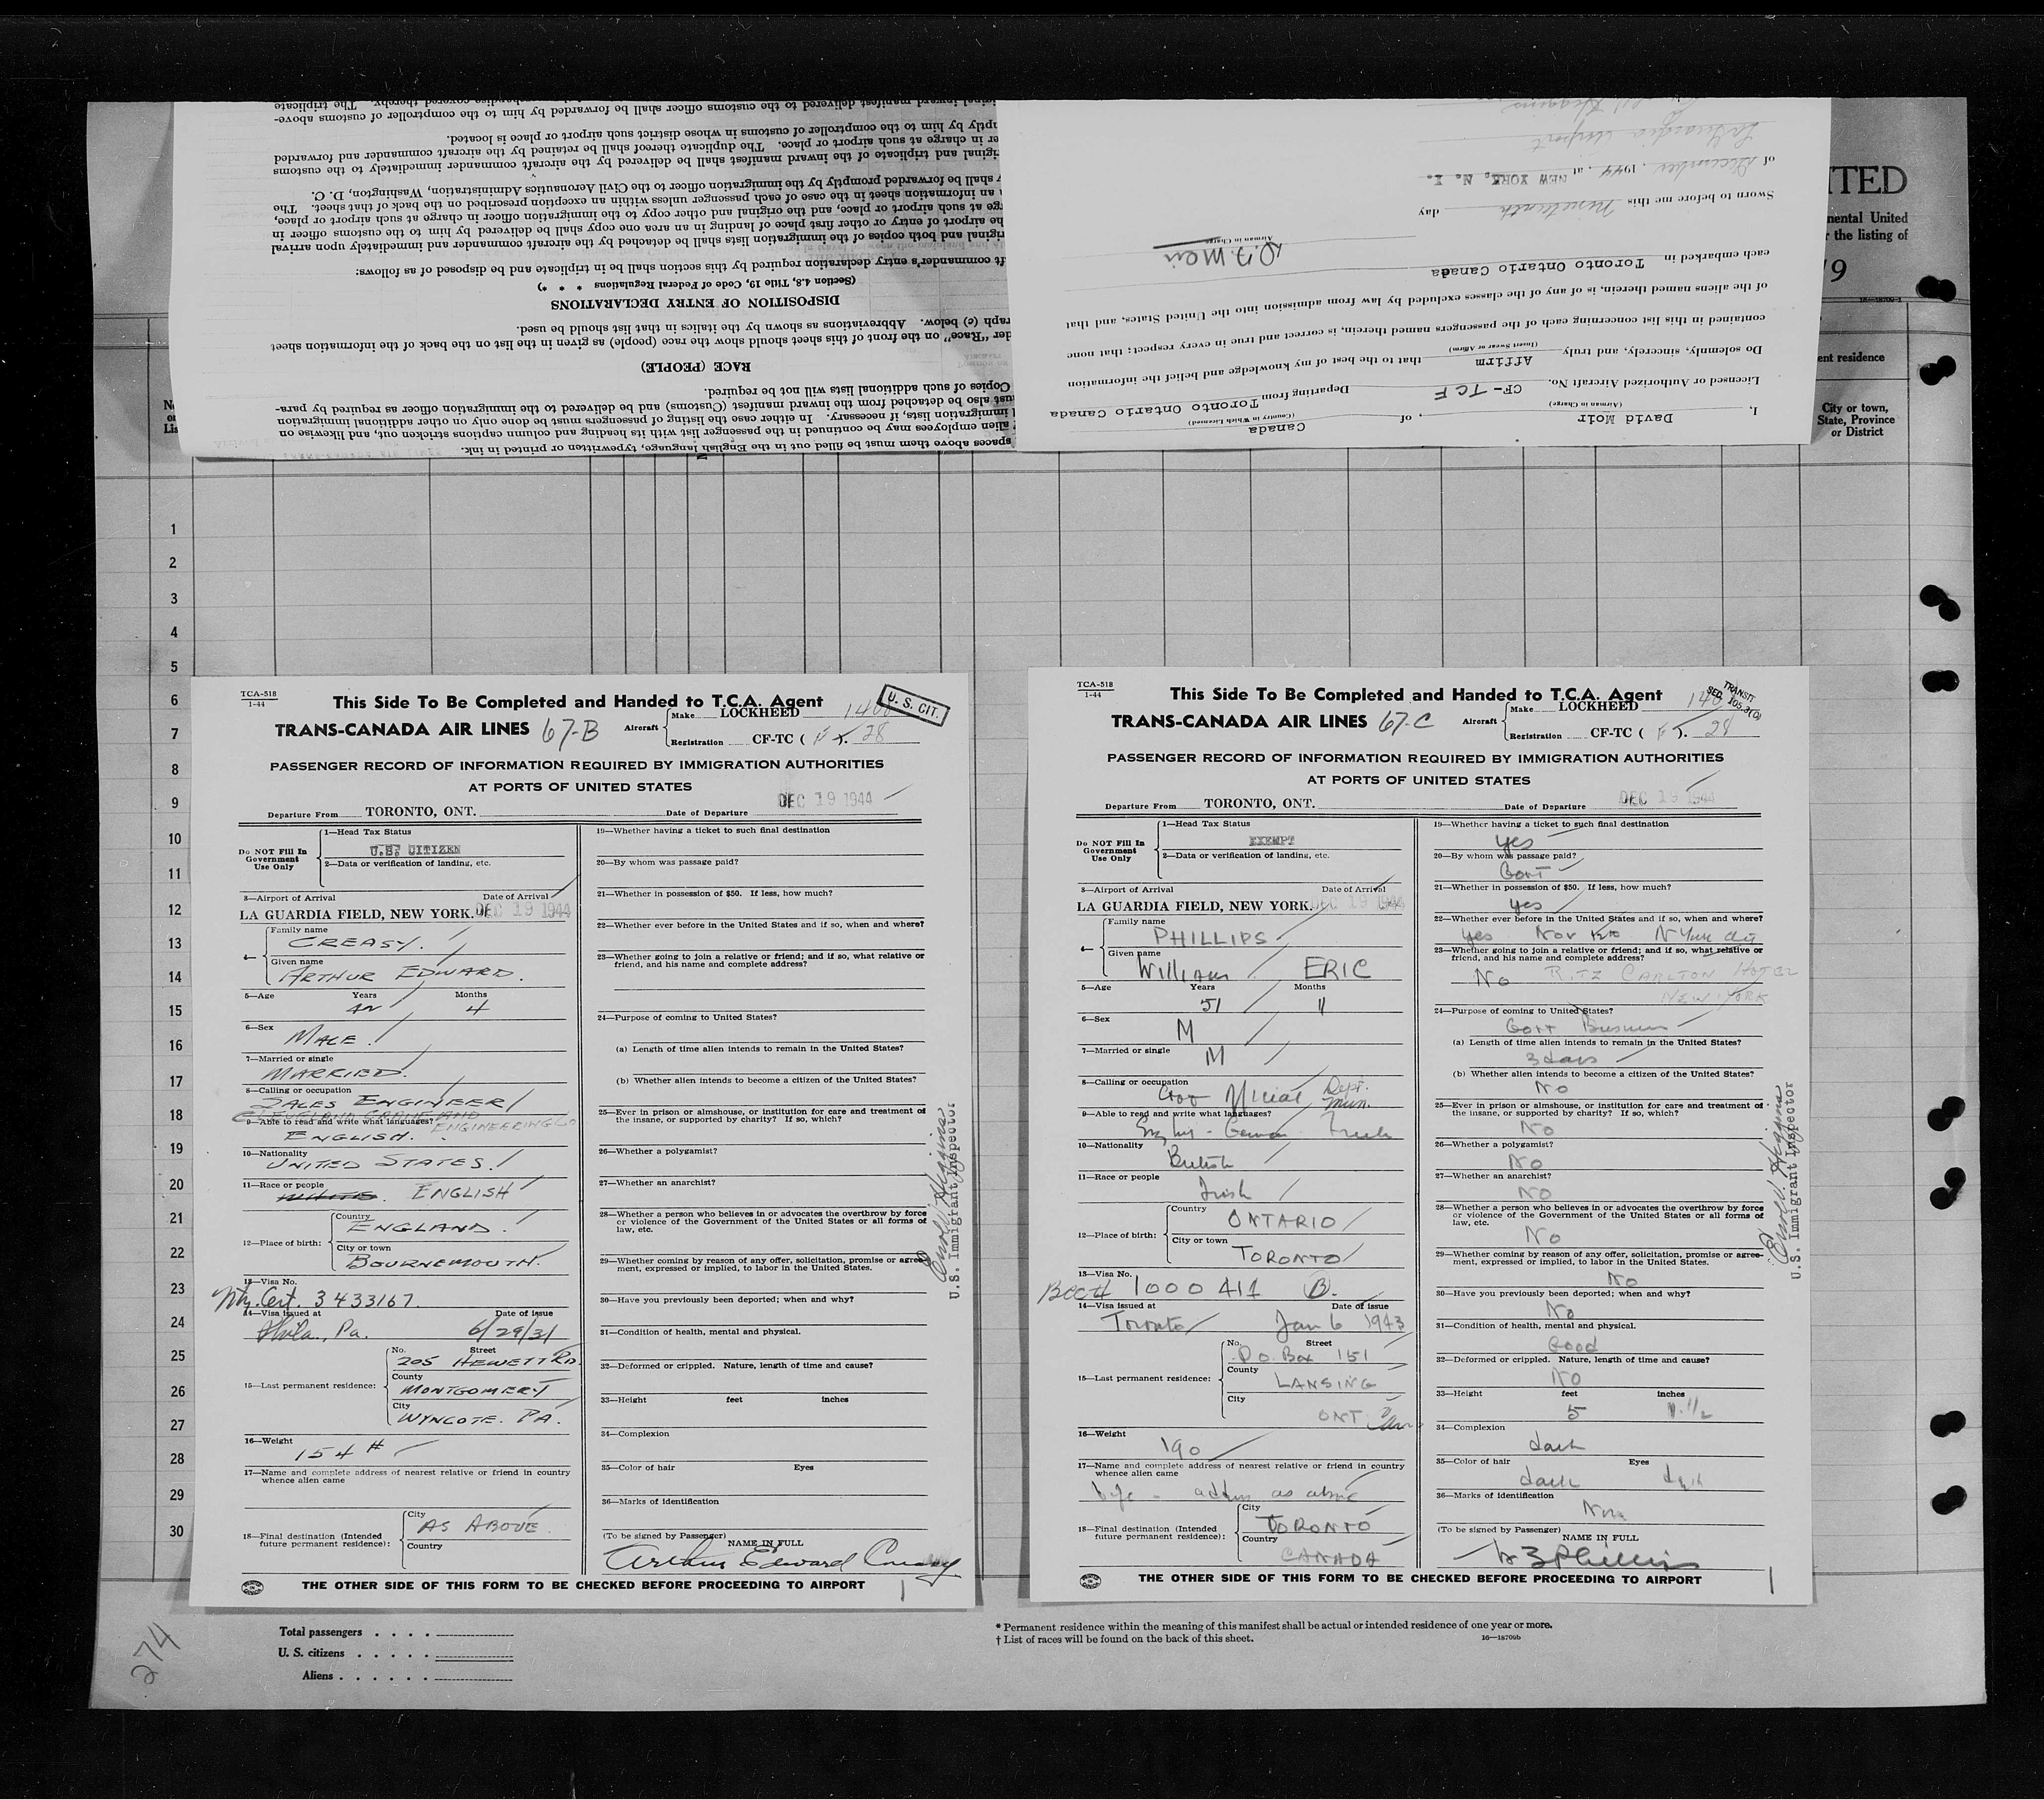 ITED
nental United
r the listing of
19
16—18709-1
ent residence
City or town,
State, Province
or District
I, David Moir, of Canada
(Airman in Charge) (Country in Which Licensed)
Licensed or Authorized Aircraft No. CF-TCF Departing from Toronto Ontario Canada
Do solemnly, sincerely, and truly Affirm that to the best of my knowledge and belief the information
(Insert Swear or Affirm)
contained in this list concerning each of the passengers named therein, is correct and true in every respect; that none
of the aliens named therein, is of any of the classes excluded by law from admission into the United States, and that
each embarked in Toronto Ontario Canada
D. Moir
Airman in Charge
Sworn to before me this Nineteenth day
of December, 1944, at NEW YORK, N. Y.
LaGuardia Airport
spaces above them must be filled out in the English language, typewritten or printed in ink.
alien employees may be continued in the passenger list with its heading and column captions stricken out, and likewise on
immigration lists, if necessary. In either case the listing of passengers must be done only on other additional immigration
ust also be detached from the inward manifest (Customs) and be delivered to the immigration officer as required by para-
Copies of such additional lists will not be required.
RACE (PEOPLE)
der "Race" on the front of this sheet should show the race (people) as given in the list on the back of the information sheet
raph (c) below. Abbreviations as shown by the italics in that list should be used.
DISPOSITION OF ENTRY DECLARATIONS
(Section 4.8, Title 19, Code of Federal Regulations * * *)
ft commander's entry declaration required by this section shall be in triplicate and be disposed of as follows:
riginal and both copies of the immigration lists shall be detached by the aircraft commander and immediately upon arrival
he airport of entry or other first place of landing in an area one copy shall be delivered by him to the customs officer in
ge at such airport or place, and the original and other copy to the immigration officer in charge at such airport or place,
h an information sheet in the case of each passenger unless within an exception prescribed on the back of that sheet. The
y shall be forwarded promptly by the immigration officer to the Civil Aeronautics Administration, Washington, D. C.
riginal and triplicate of the inward manifest shall be delivered by the aircraft commander immediately to the customs
er in charge at such airport or place. The duplicate thereof shall be retained by the aircraft commander and forwarded
mptly by him to the comptroller of customs in whose district such airport or place is located.
ginal inward manifest delivered to the customs officer shall be forwarded by him to the comptroller of customs above-
1
2
3
4
5
6
7
8
9
10
11
12
13
14
15
16
17
18
19
20
21
22
23
24
25
26
27
28
29
30
TCA-518
1-44
This Side To Be Completed and Handed to T.C.A. Agent
U. S. CIT.
TRANS-CANADA AIR LINES 67-B
Aircraft Make LOCKHEED 1408
Registration CF-TC ( F ). 28
PASSENGER RECORD OF INFORMATION REQUIRED BY IMMIGRATION AUTHORITIES
AT PORTS OF UNITED STATES
Departure From TORONTO, ONT. Date of Departure DEC 19 1944
Do NOT Fill In
Government
Use Only
1—Head Tax Status
U.S. CITIZEN
2—Data or verification of landing, etc.
3—Airport of Arrival Date of Arrival
LA GUARDIA FIELD, NEW YORK. DEC 19 1944
4— Family name
CREASY.
Given name
ARTHUR EDWARD.
5—Age Years Months
4
6—Sex
MALE.
7—Married or single
MARRIED.
8—Calling or occupation
SALES ENGINEER
CLEVELAND CRANE AND
ENGINEERING CO
9—Able to read and write what languages?
ENGLISH.
10—Nationality
UNITED STATES.
11—Race or people
WHITE. ENGLISH
12—Place of birth:
Country
ENGLAND.
City or town
BOURNEMOUTH.
13—Visa No.
Ntz. Cert. 3433167.
14—Visa issued at Date of issue
Phila., Pa. 6/29/31
15—Last permanent residence:
No. Street
205 HEWETT RD.
County
MONTGOMERY
City
WYNCOTE. PA.
16—Weight
154 #
17—Name and complete address of nearest relative or friend in country
whence alien came
18—Final destination (Intended
future permanent residence):
City
AS ABOVE
Country
19—Whether having a ticket to such final destination
20—By whom was passage paid?
21—Whether in possession of $50. If less, how much?
22—Whether ever before in the United States and if so, when and where?
23—Whether going to join a relative or friend; and if so, what relative or
friend, and his name and complete address?
24—Purpose of coming to United States?
(a) Length of time alien intends to remain in the United States?
(b) Whether alien intends to become a citizen of the United States?
25—Ever in prison or almshouse, or institution for care and treatment of
the insane, or supported by charity? If so, which?
26—Whether a polygamist?
27—Whether an anarchist?
28—Whether a person who believes in or advocates the overthrow by force
or violence of the Government of the United States or all forms of
law, etc.
29—Whether coming by reason of any offer, solicitation, promise or agree-
ment, expressed or implied, to labor in the United States.
30—Have you previously been deported; when and why?
31—Condition of health, mental and physical.
32—Deformed or crippled. Nature, length of time and cause?
33—Height feet inches
34—Complexion
35—Color of hair Eyes
36—Marks of identification
(To be signed by Passenger)
NAME IN FULL
Arthur Edward Creasy
THE OTHER SIDE OF THIS FORM TO BE CHECKED BEFORE PROCEEDING TO AIRPORT
U.S. Immigrant Inspector
TCA-518
1-44
This Side To Be Completed and Handed to T.C.A. Agent
TRANSIT
SEC. 105.3(D)
TRANS-CANADA AIR LINES 67-C
Aircraft Make LOCKHEED 1408
Registration CF-TC ( F ). 28
PASSENGER RECORD OF INFORMATION REQUIRED BY IMMIGRATION AUTHORITIES
AT PORTS OF UNITED STATES
Departure From TORONTO, ONT. Date of Departure DEC 19 1944
Do NOT Fill In
Government
Use Only
1—Head Tax Status
EXEMPT
2—Data or verification of landing, etc.
3—Airport of Arrival Date of Arrival
LA GUARDIA FIELD, NEW YORK. DEC 19 1944
4— Family name
PHILLIPS
Given name
William ERIC
5—Age Years Months
51 11
6—Sex
M
7—Married or single
M
8—Calling or occupation
Gov Official Dept. Mun.
9—Able to read and write what languages?
English - German - French
10—Nationality
British
11—Race or people
Irish
12—Place of birth:
Country
ONTARIO
City or town
TORONTO
13—Visa No.
BCC# 1000411 B.
14—Visa issued at Date of issue
Toronto Jan 6 1943
15—Last permanent residence:
No. Street
P.O. Box 151
County
LANSING
City
ONT
16—Weight
190
17—Name and complete address of nearest relative or friend in country
whence alien came
wife - address as above
18—Final destination (Intended
future permanent residence):
City
TORONTO
Country
CANADA
19—Whether having a ticket to such final destination
yes
20—By whom was passage paid?
Govt
21—Whether in possession of $50. If less, how much?
yes
22—Whether ever before in the United States and if so, when and where?
yes Nov N York City
23—Whether going to join a relative or friend; and if so, what relative or
friend, and his name and complete address?
No RITZ CARLTON HOTEL
NEW YORK
24—Purpose of coming to United States?
Govt Business
(a) Length of time alien intends to remain in the United States?
3 days
(b) Whether alien intends to become a citizen of the United States?
No
25—Ever in prison or almshouse, or institution for care and treatment of
the insane, or supported by charity? If so, which?
No
26—Whether a polygamist?
No
27—Whether an anarchist?
No
28—Whether a person who believes in or advocates the overthrow by force
or violence of the Government of the United States or all forms of
law, etc.
No
29—Whether coming by reason of any offer, solicitation, promise or agree-
ment, expressed or implied, to labor in the United States.
No
30—Have you previously been deported; when and why?
No
31—Condition of health, mental and physical.
Good
32—Deformed or crippled. Nature, length of time and cause?
No
33—Height feet inches
5
34—Complexion
dark
35—Color of hair Eyes
dark dark
36—Marks of identification
None
(To be signed by Passenger)
NAME IN FULL
W E Phillips
THE OTHER SIDE OF THIS FORM TO BE CHECKED BEFORE PROCEEDING TO AIRPORT
U.S. Immigrant Inspector
Total passengers . . . .
U. S. citizens . . . . .
Aliens . . . . . .
* Permanent residence within the meaning of this manifest shall be actual or intended residence of one year or more.
† List of races will be found on the back of this sheet.
16—18709b
274